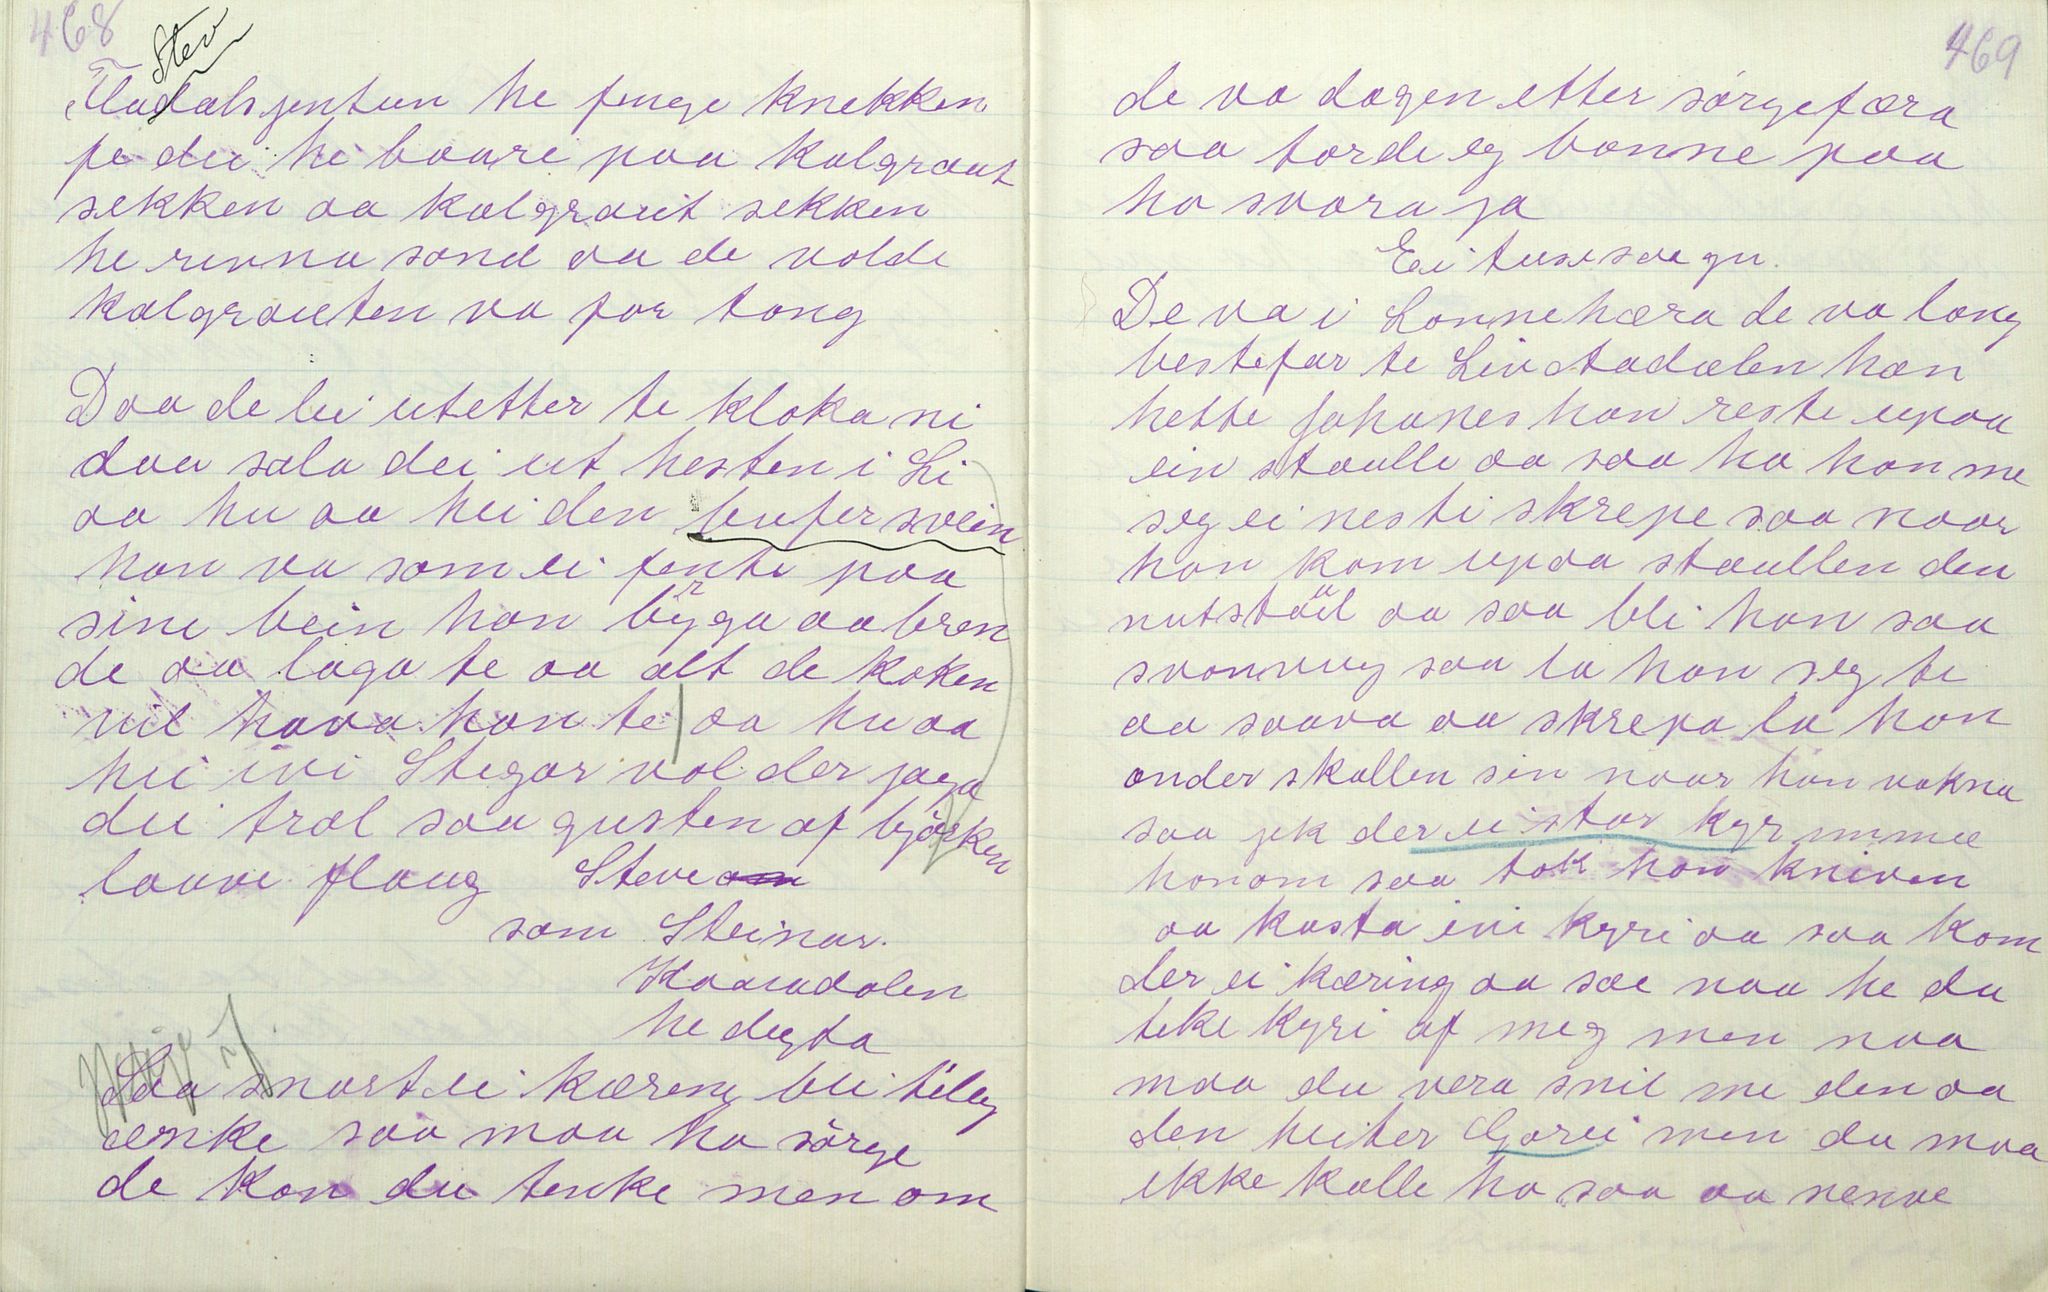 468
Stev
Aadalsjentun he fenge knekken
fe dei he baare paa kalgraut
sekken aa kalgraut sekken
he renna sond aa de volde
kalgrauten va for tong
Daa de lei utetter te kloka ni
daa sala dei ut hesten i Li
aa hu aa hei den bufersvein
han va som ei jente paa
sine bein han byrga aa bren
de aa laga te aa alt de koken
vil hava han te aa hu aa
hei ivi Stegar vol der jaga
dei trol saa gusten af bjørken
lauve flaug Steve
som Steinar
Haaudalen
he digta
Saa snart ei kæreng bli tileg
ænke saa maa ho sörge
de kan du tenke men om
469
de va dagen etter sørgefæra
saa torde eg vonne paa
ho svara ja
Ei tusesaegn.
De va i Lonnehæra de va lang
bestefar te Liv Aadalen han
hette Johanes han reste upaa
ein staulle aa saa ha han me
seg ei nesti skrepe saa naar
han kom upaa staullen den
nutstaul aa saa blei han saa
svonvug saa la han seg te
aa saava aa skrepa la han
onder skallen sin naar han vakna
saa jek der ei stor kyr ummee
honom saa tok han kniven
aa kasta ivi kyri aa saa kom
der ei kæring aa sae naa he du
teke kyri af meg men naa
maa du vera snil me den aa
den heiter Gorei men du maa
ikke kalle ho saa aa nenne